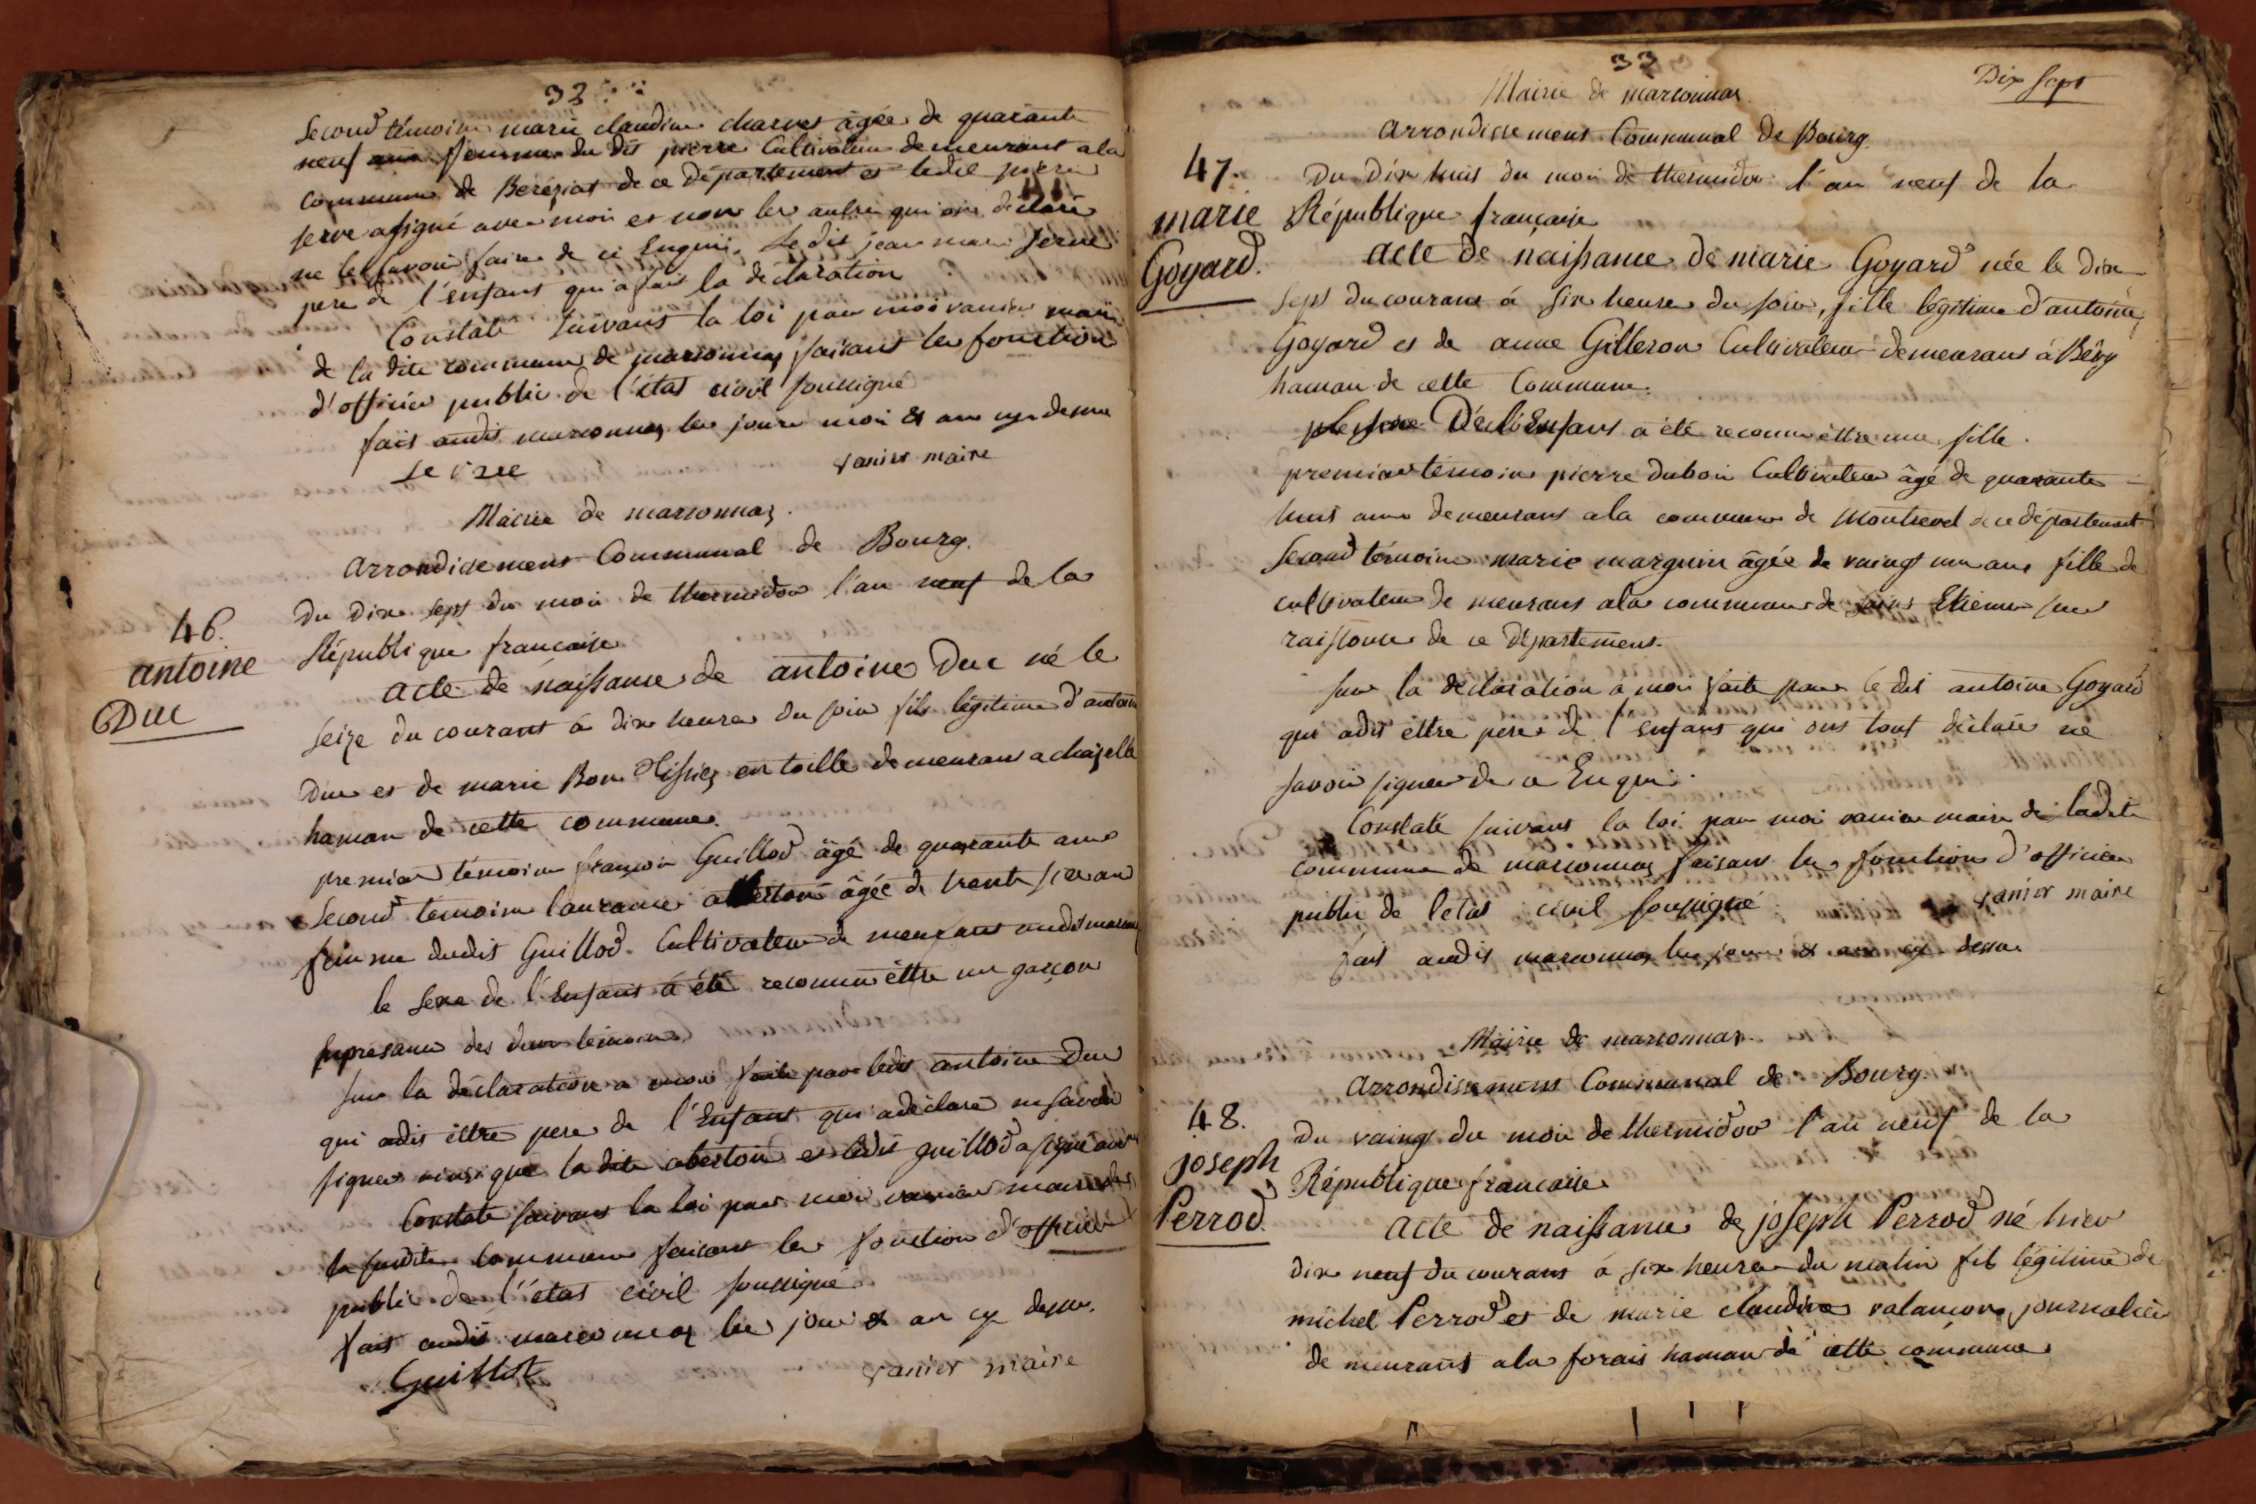 32
Second témoin marie claudine charvet âgée de quarante
neuf ans femme du dit pierre Cultivateur demeurant a la
commune de Bereziat de ce département et ledit pierre
serve a signé avec moi et non les autres qui ont déclaré
ne le savoir faire de ce Enquis. le dit jean marie serve
pere de l'enfant qui a fait la déclaration
Constaté suivant la loi par moi vanier maire
de la dite commune de marsonnas faisant les fonction
d'officier public de l'état civil soussigné
fait audit marsonnas les jours mois et an cy dessus
vanier maire
Mairie de marsonnas.
arrondissement Communal de Bourg.
46.
antoine
Duc
Du Dix sept du mois de thermidor l'an neuf de la
République francaise
acte de naissance de antoine Duc né le
seize du courant á dix heures du soir fils légitime d'antoine
Duc et de marie Bon tissier en toille demeurant a chazelle
hamau de cette commune.
premier témoin françois Guillod âgé de quarante ans
second temoin laurance âgée de trente six ans
femme dudit Guillod. Cultivateur demeurant audit marsonnas
le sexe de l'Enfant á été reconnu êttre un garçon
en présance des deux témoins
sur la déclaration a moi faite par ledit antoine Duc
qui adit êttre pere de l'Enfant qui adéclaré ne savoir
signer ainsi que la dite et ledit guillod a signé avec moi
Constaté suivant la loi par moi vanier maire de
la susdite commune faisant les fonction d'officier
public de l'état civil soussigné
fait audit marsonnas les jour & an cy dessus.
Guillot vanier maire
33
Dix sept
Mairie de marsonnas
arrondissement Communal de Bourg
47.
marie
Goyard.
Du Dix huit du mois de thermidor l'an neuf de la
République française
acte de naissance de marie Goyard née le dix
sept du courant á six heures du soir, fille légitime d'antoine
Goyard et de anne Gilleron Cultivateur demeurant á Bévy
hamau de cette Commune.
le sexe De l'Enfant a été reconnu êttre une fille.
premier témoin pierre dubois Cultivateur âgé de quarante
huit ans demeurant ala commune de Montrevel de ce département
Second témoin marie marguin âgée de vaingt un ans fille de
cultivateur demeurant ala commune de saint Etienne sur
raissouse de ce département.
sur la déclaration a moi faite par le dit antoine Goyard
qui adit êttre pere de l'Enfant qui ont tout déclaré ne
savoir signer de ce Enquis.
Constaté suivant la loi par moi vanier maire de ladite
commune de marsonnas faisant les fonction d'officier
public de l'état civil soussigné vanier maire
fait audit marsonnas les jour & an cy dessus
Mairie de marsonnas
arrondissement Communal de Bourg.
48.
joseph
Perrod.
Du vaingt du mois de thermidor l'an neuf de la
République francaise
acte de naissance de joseph Perrod né hier
dix neuf du courant á six heures du matin fils légitime de
michel Perrod et de marie claudine valançon, journalier
demeurant ala forais hamau de cette commune